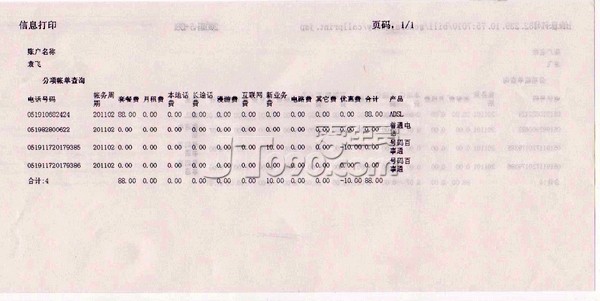 信息打印 页码, 1/1
账户名称
袁飞
分项账单查询
电话号码 账务周期 套餐费 月租费 本地话费 长途话费 漫游费 互联网费 新业务费 电路费 其它费 优惠费 合计 产品
051910682424 201102 88.00 0.00 0.00 0.00 0.00 0.00 0.00 0.00 0.00 0.00 88.00 ADSL
051982800622 201102 0.00 0.00 0.00 0.00 0.00 0.00 0.00 0.00 0.00 0.00 0.00 普通电话
051911720179385 201102 0.00 0.00 0.00 0.00 0.00 0.00 10.00 0.00 0.00 -10.00 0.00 号码百事通
051911720179386 201102 0.00 0.00 0.00 0.00 0.00 0.00 0.00 0.00 0.00 0.00 0.00 号码百事通
合计:4 88.00 0.00 0.00 0.00 0.00 0.00 10.00 0.00 0.00 -10.00 88.00